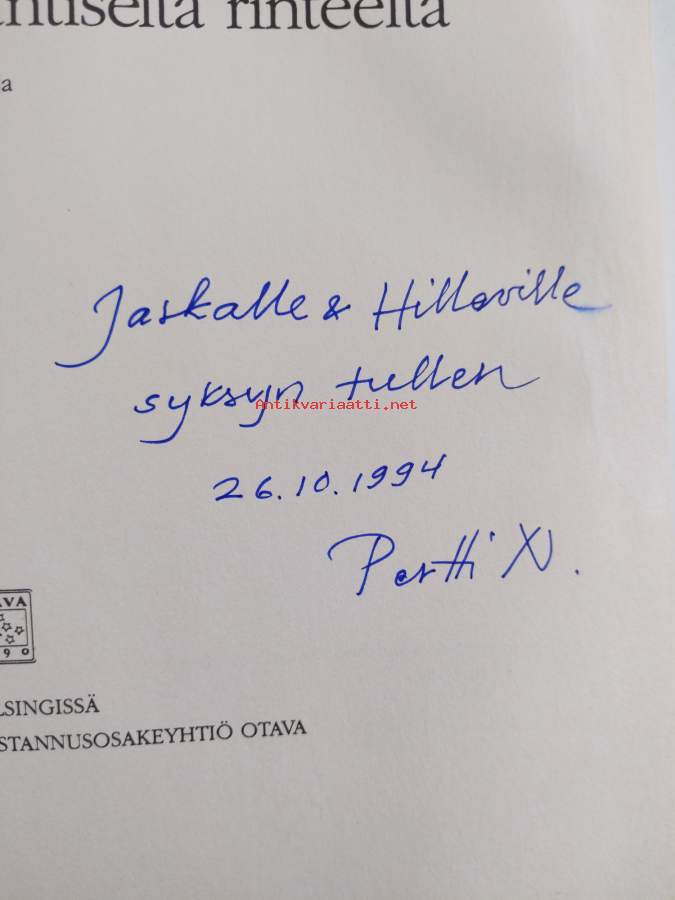 ntiselta rinteeltä
a
Jaskalle & Hilleville
syksyn tullen
Antikvariaatti.net
26.10.1994
Pertti N.
AVA
90
LSINGISSÄ
STANNUSOSAKEYHTIÖ OTAVA